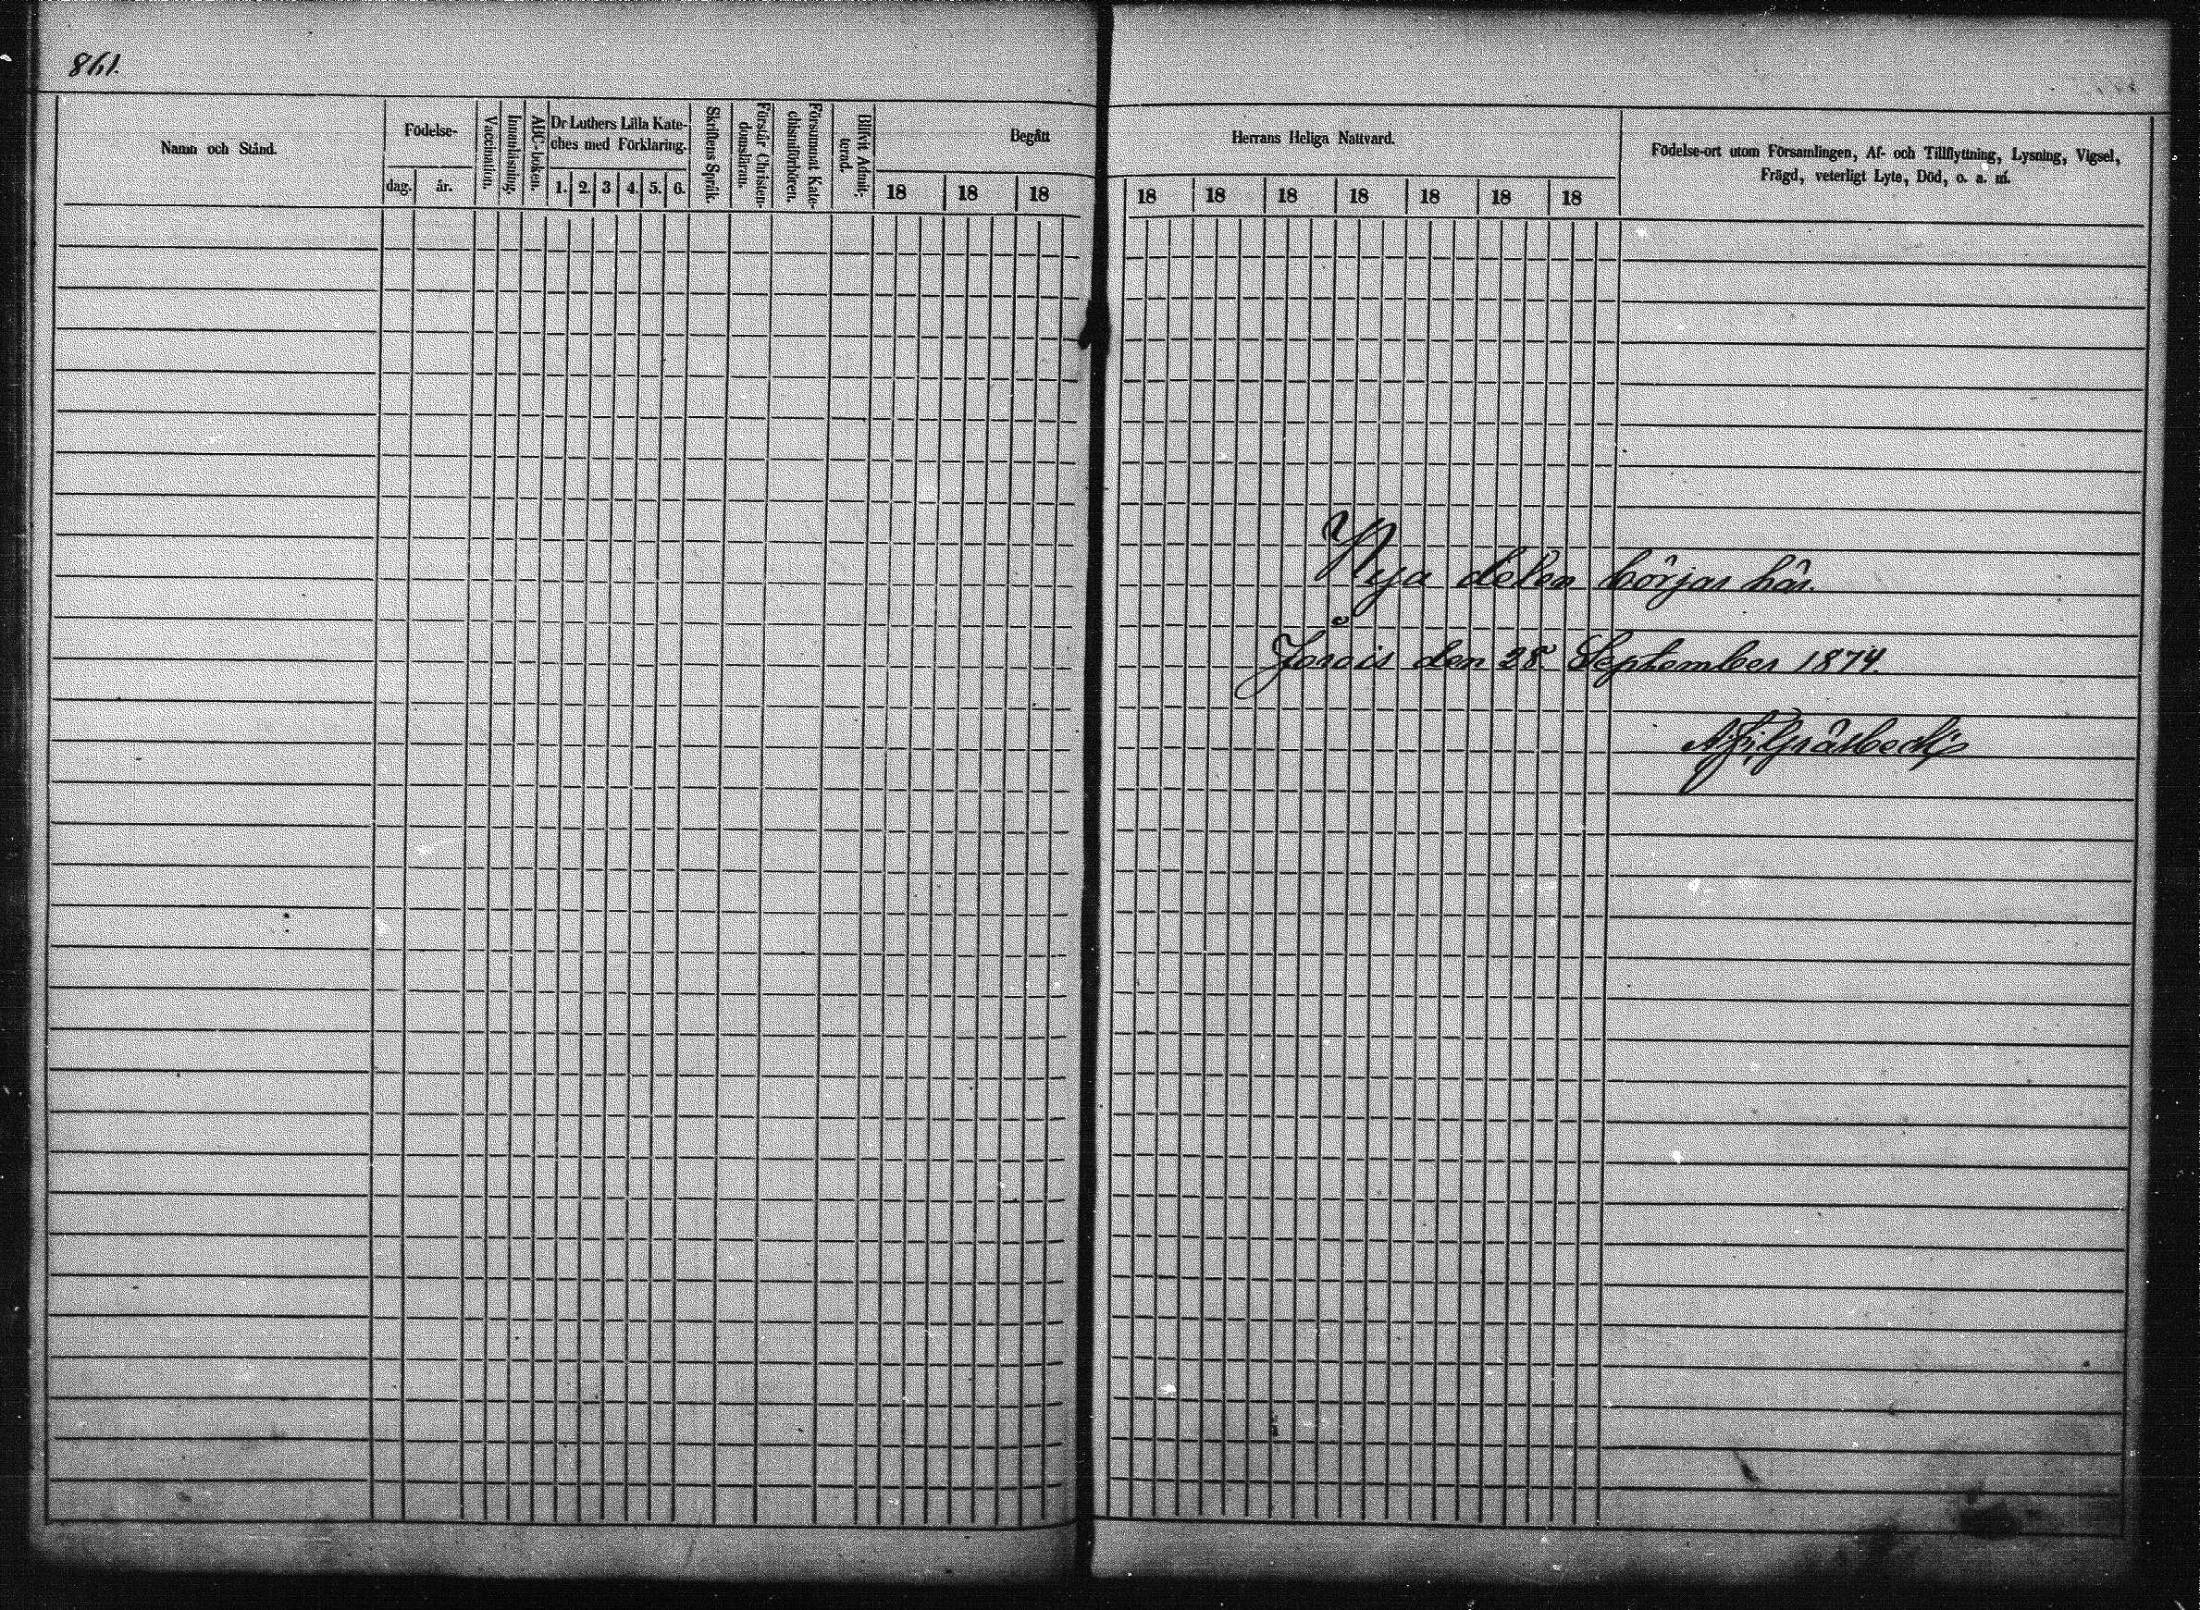 861.
Namn och Stånd.
Födelse-
dag.
år.
Vaccination.
Innanläsning.
ABC-boken.
Dr Luthers Lilla Kate-
ches med Förklaring.
1. 2. 3 4. 5. 6.
Skriftens Språk.
Förstår Christen-
domsläran.
Försummat Kate-
chismiförhören.
Blifvit Admit-
terad.
Begått
18 18 18
Herrans Heliga Nattvard.
18 18 18 18 18 18 18
Födelse-ort utom Församlingen, Af- och Tillflyttning, Lysning, Vigsel,
Frägd, veterligt Lyte, Död, o. a. m.
Nya delen börjar här.
Jorois den 28 September 1874.
Gråsbeck